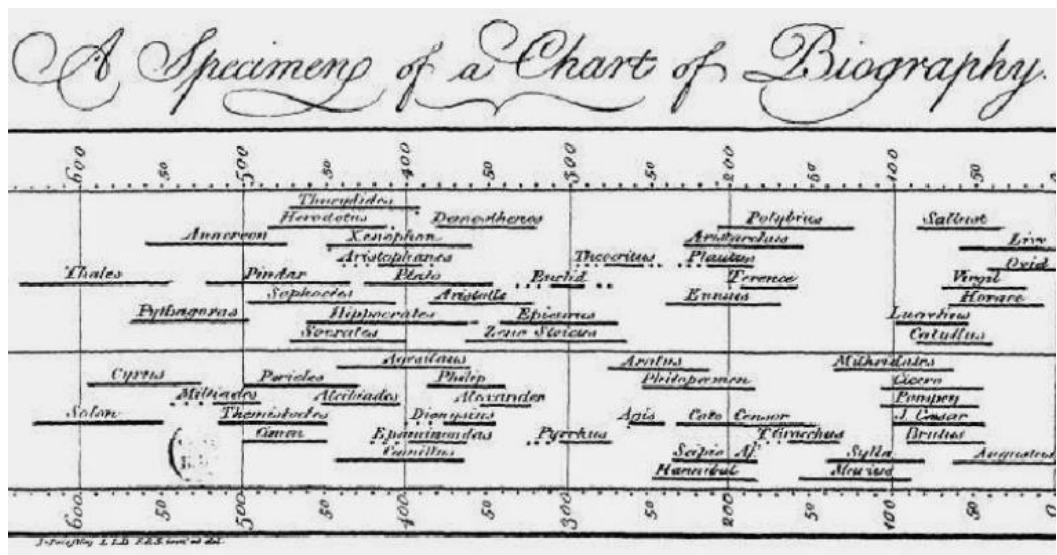 A Specimen of a Chart of Biography.
600 50 500 50 400 50 300 50 200 50 100 50
Thucydides
Herodotus Demosthenes Polybius Sallust
Anacreon Xenophon Aristarchus Livy
Aristophanes Theocritus Plautus Ovid
Thales Pindar Plato Euclid Terence Virgil
Sophocles Aristotle Ennius Horace
Pythagoras Hippocrates Epicurus Lucretius
Socrates Zeno Stoicus Catullus
Agesilaus Aratus Mithridates
Cyrus Pericles Philip Philopoemen Cicero
Miltiades Alcibiades Alexander Pompey
Solon Themistocles Dionysius Agis Cato Censor J. Cæsar
Cimon Epaminondas Pyrrhus T. Gracchus Brutus
Camillus Scipio Af. Sylla Augustus
Hannibal Marius
600 50 500 50 400 50 300 50 200 50 100 50